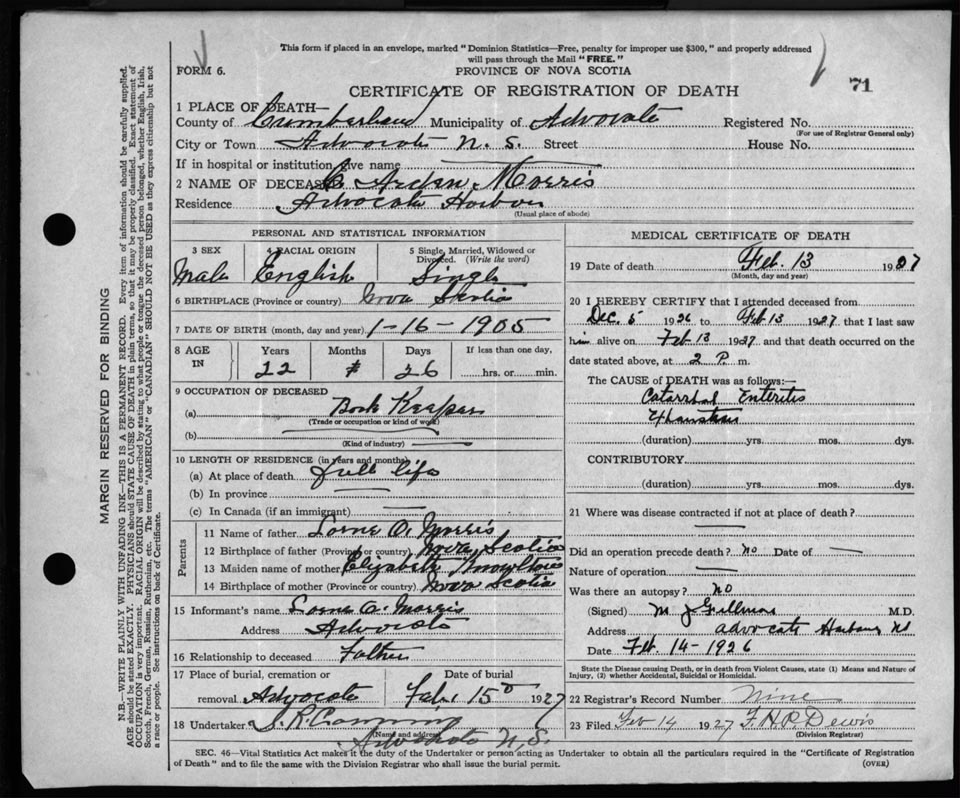 This form if placed in an envelope, marked "Dominion Statistics—Free, penalty for improper use $300," and properly addressed
will pass through the Mail "FREE."
FORM 6.
PROVINCE OF NOVA SCOTIA
71
CERTIFICATE OF REGISTRATION OF DEATH
1 PLACE OF DEATH—
County of Cumberland Municipality of Advocate Registered No.
(For use of Registrar General only)
City or Town Advocate N. S. Street House No.
If in hospital or institution give name
2 NAME OF DECEASED C Arden Morris
Residence Advocate Harbour
(Usual place of abode)
PERSONAL AND STATISTICAL INFORMATION
3 SEX 4 RACIAL ORIGIN 5 Single, Married, Widowed or Divorced. (Write the word)
Male English Single
6 BIRTHPLACE (Province or country) Nova Scotia
7 DATE OF BIRTH (month, day and year) 1-16-1905
8 AGE IN Years Months Days If less than one day,
22 26 hrs. or min.
9 OCCUPATION OF DECEASED
(a) Book Keeper
(Trade or occupation or kind of work)
(b)
(Kind of industry)
10 LENGTH OF RESIDENCE (in years and months)
(a) At place of death full life
(b) In province
(c) In Canada (if an immigrant)
Parents
11 Name of father Lorne A. Morris
12 Birthplace of father (Province or country) Nova Scotia
13 Maiden name of mother Elizabeth Knowlton
14 Birthplace of mother (Province or country) Nova Scotia
15 Informant's name Lorne A. Morris
Address Advocate
16 Relationship to deceased Father
17 Place of burial, cremation or Date of burial
removal Advocate Feb. 15 1927
18 Undertaker J. R.
(Name and address)
Advocate N.S.
MEDICAL CERTIFICATE OF DEATH
19 Date of death Feb. 13 1927
(Month, day and year)
20 I HEREBY CERTIFY that I attended deceased from
Dec. 5 1926 to Feb 13 1927 that I last saw
him alive on Feb 13 1927 and that death occurred on the
date stated above, at 2 P. m.
The CAUSE of DEATH was as follows:—
Catarrhal Enteritis
Exhaustion
(duration) yrs. mos. dys.
CONTRIBUTORY.
(duration) yrs. mos. dys.
21 Where was disease contracted if not at place of death?
Did an operation precede death? No Date of
Nature of operation
Was there an autopsy? No
(Signed) M. J. M.D.
Address Advocate Harbour NS
Date Feb. 14-1926
State the Disease causing Death, or in death from Violent Causes, state (1) Means and Nature of
Injury, (2) whether Accidental, Suicidal or Homicidal.
22 Registrar's Record Number Nine
23 Filed Feb 14 1927 F.H.P. Dewis
(Division Registrar)
SEC. 46—Vital Statistics Act makes it the duty of the Undertaker or person acting as Undertaker to obtain all the particulars required in the "Certificate of Registration
of Death" and to file the same with the Division Registrar who shall issue the burial permit.
(OVER)
MARGIN RESERVED FOR BINDING
N.B.—WRITE PLAINLY WITH UNFADING INK—THIS IS A PERMANENT RECORD. Every item of information should be carefully supplied.
AGE should be stated EXACTLY. PHYSICIANS should STATE CAUSE OF DEATH in plain terms, so that it may be properly classified. Exact statement of
OCCUPATION is very important. RACIAL ORIGIN will be described by stating to what people or tongue the deceased person belonged, whether English, Irish,
Scotch, French, German, Russian, Ruthenian, etc. The terms "AMERICAN" or "CANADIAN" SHOULD NOT BE USED as they express citizenship but not
a race or people. See instructions on back of Certificate.